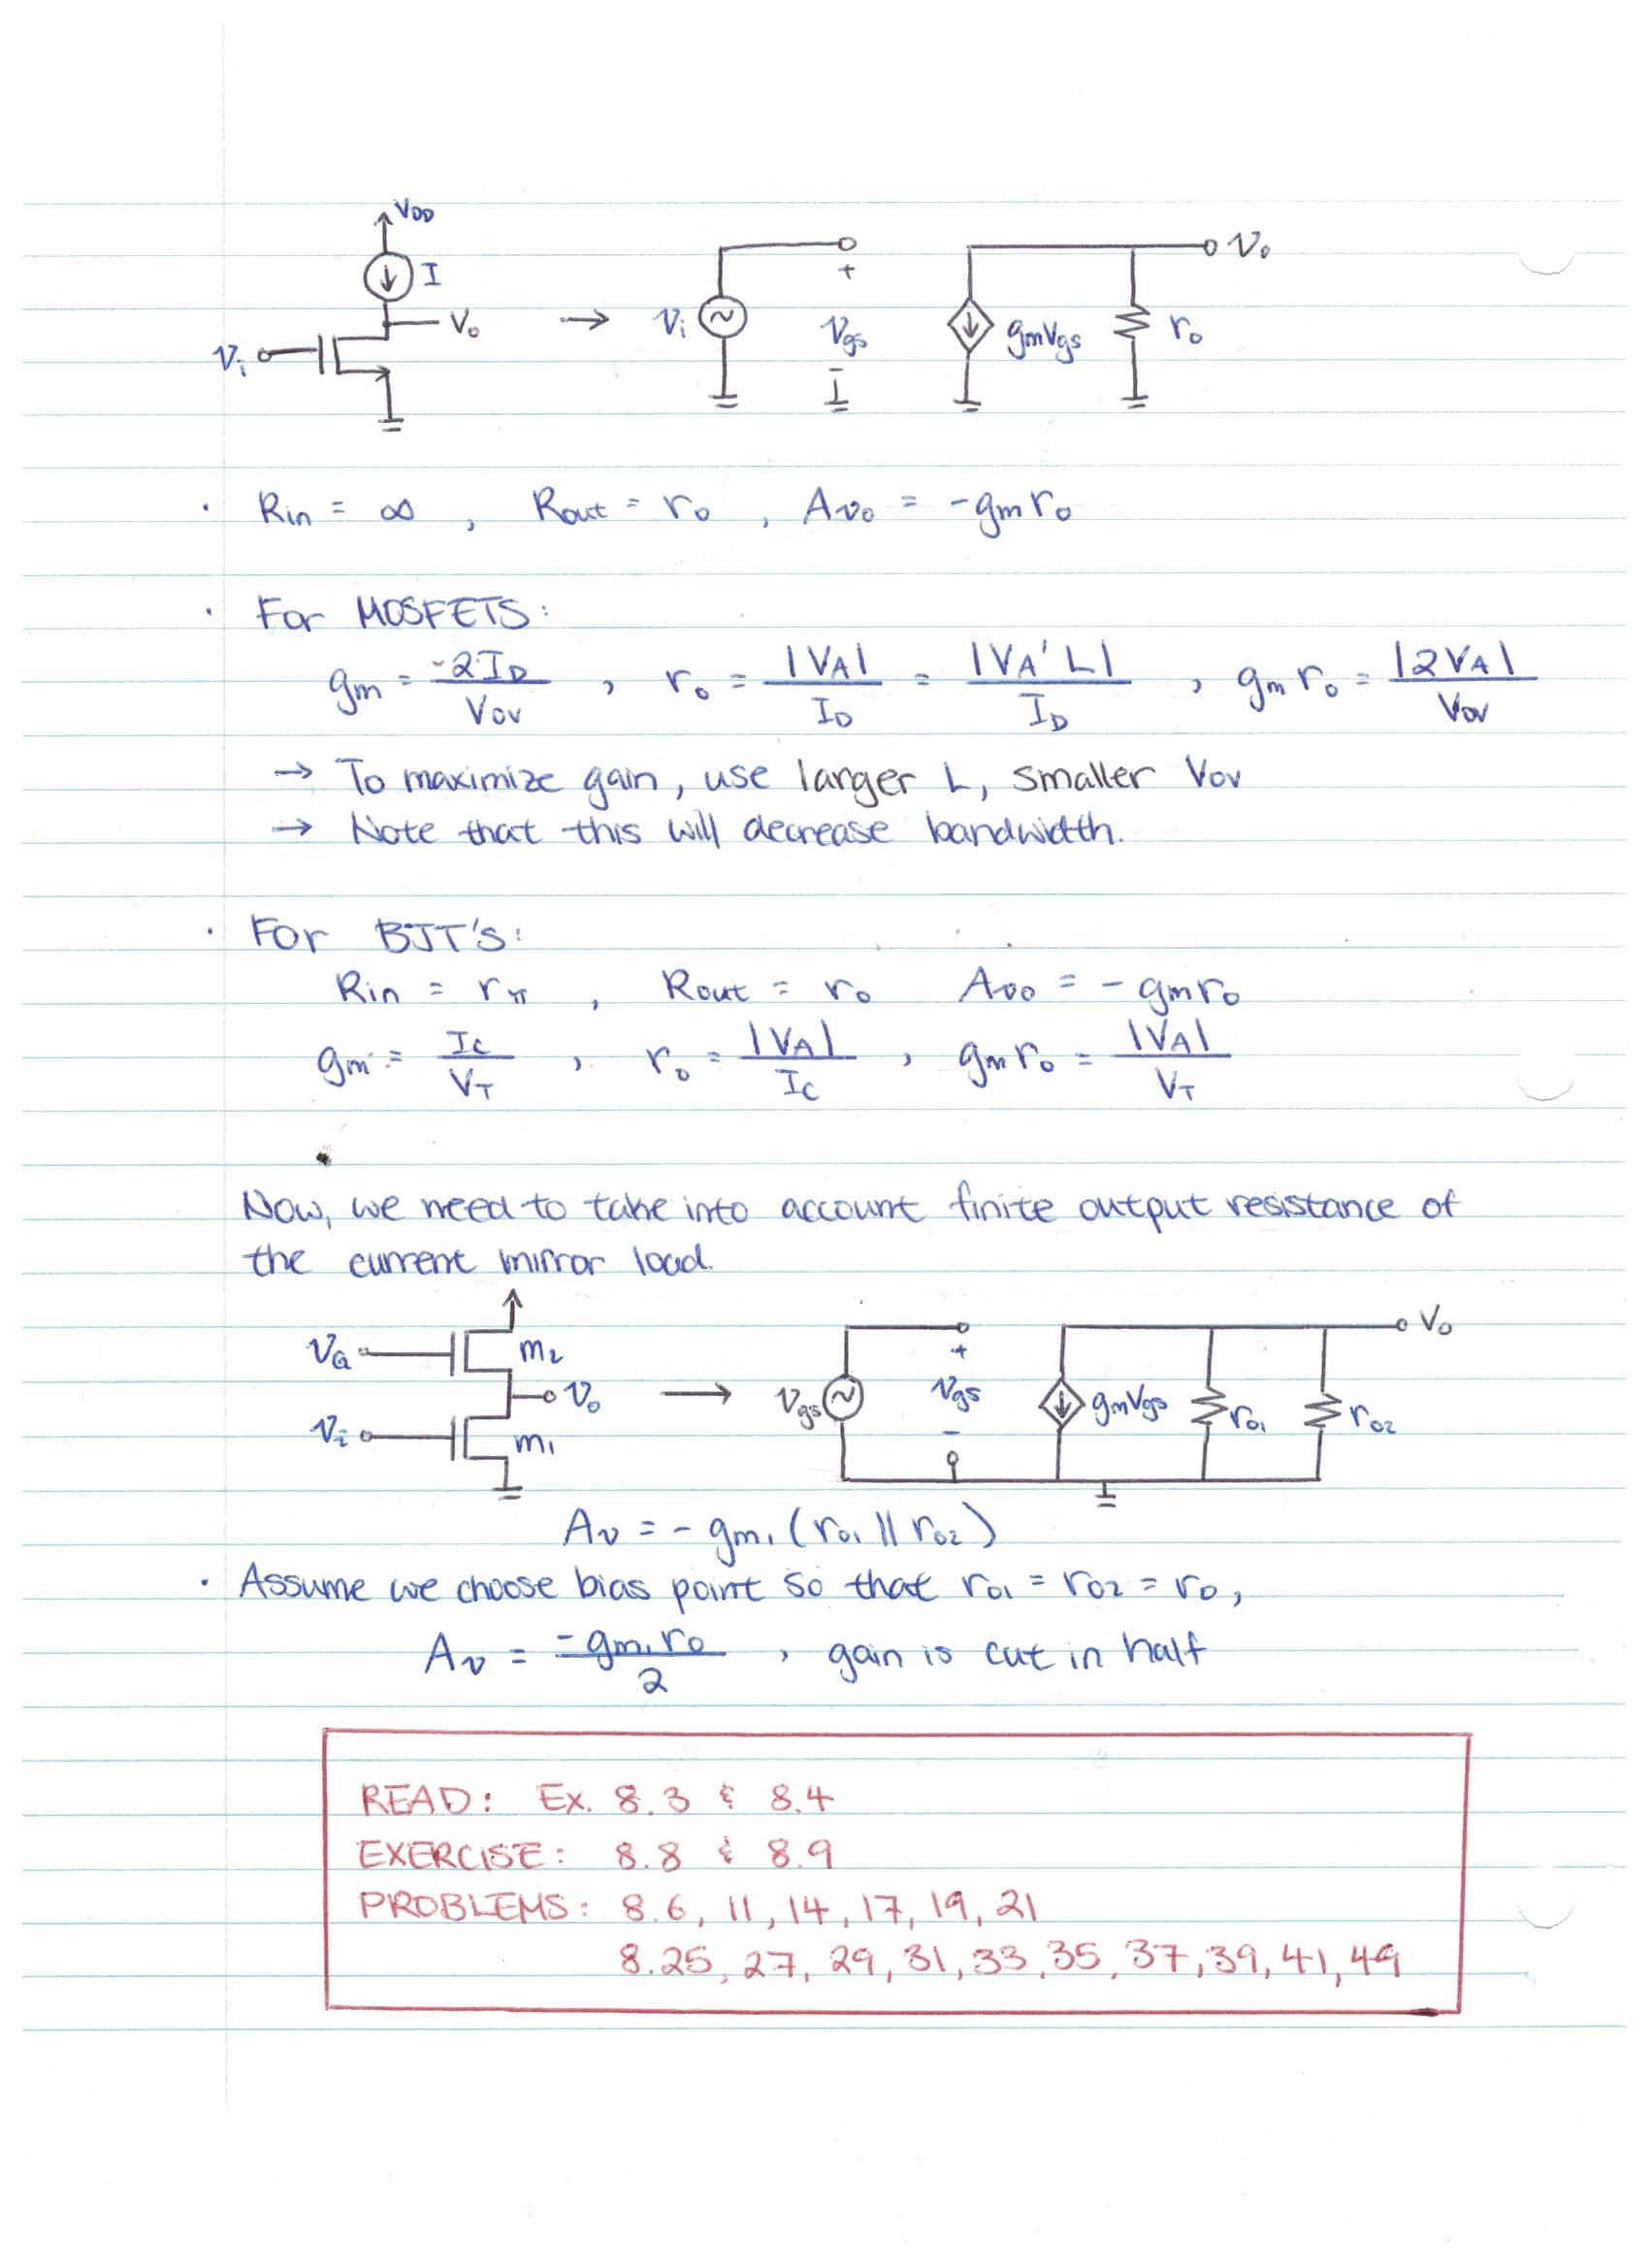 VDD
I
Vo
Vi
→ Vi
+
Vgs
-
gmVgs
ro
Vo
· Rin = ∞ , Rout = ro , Avo = -gmro
· For MOSFETS:
gm = -2ID / VOV , ro = |VA| / ID = |VA' L| / ID , gmro = |2VA| / VOV
→ To maximize gain, use larger L, smaller VOV
→ Note that this will decrease bandwidth.
· For BJT's:
Rin = rπ , Rout = ro Avo = -gmro
gm = IC / VT , ro = |VA| / IC , gmro = |VA| / VT
Now, we need to take into account finite output resistance of
the current mirror load.
VG
m2
Vo
Vi
m1
→ Vgs
+
Vgs
-
gmVgs
ro1
ro2
Vo
Av = -gm1 (ro1 || ro2)
· Assume we choose bias point so that ro1 = ro2 = ro,
Av = -gm1ro / 2 , gain is cut in half
READ: Ex. 8.3 & 8.4
EXERCISE: 8.8 & 8.9
PROBLEMS: 8.6, 11, 14, 17, 19, 21
8.25, 27, 29, 31, 33, 35, 37, 39, 41, 49